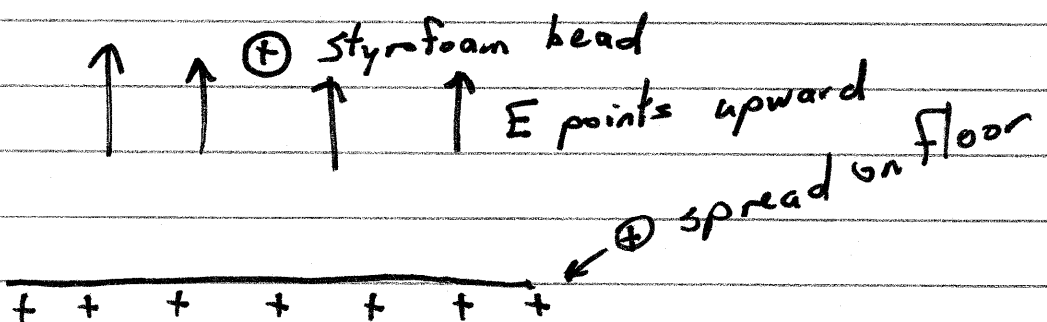 ⊕ styrofoam bead
E points upward
⊕ spread on floor
+ + + + + + +